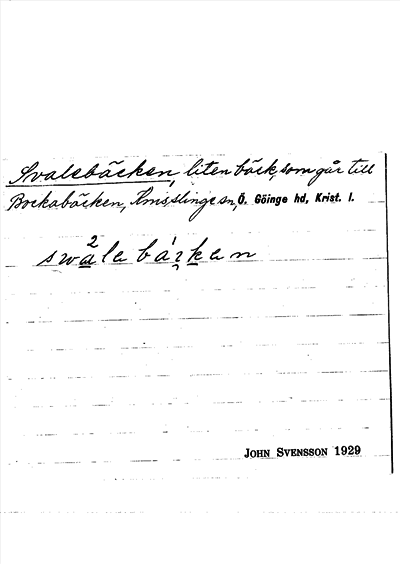 Svalebäcken, liten bäck, som går till
Bockabäcken, Knislinge sn, Ö. Göinge hd, Krist. l.
JOHN SVENSSON 1929